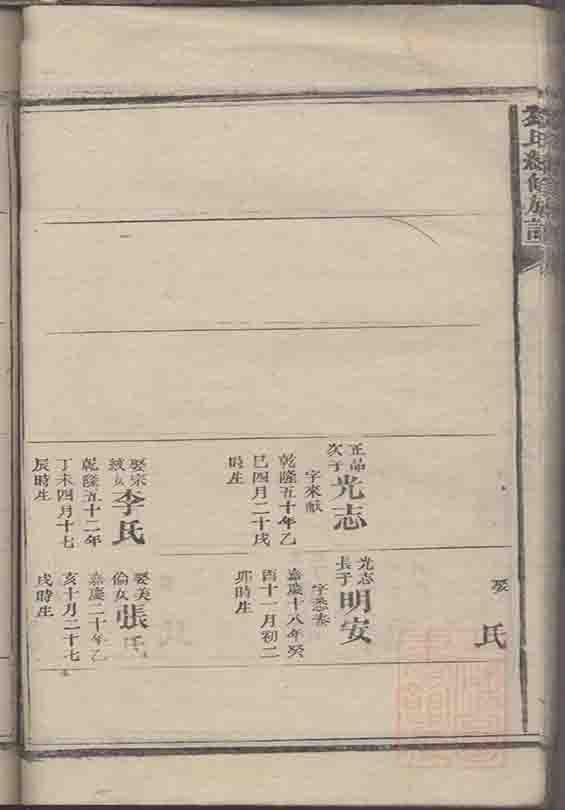 氏總修族譜
正品
次子
光志
字來獻
乾隆五十年乙
巳四月二十戌
時生
娶宗
紋女
李氏
乾隆五十二年
丁未四月十七
辰時生
娶
氏
光志
長子
明安
嘉慶十八年癸
酉十一月初二
卯時生
娶美
倫女
張氏
嘉慶二十年乙
亥十月二十七
戌時生